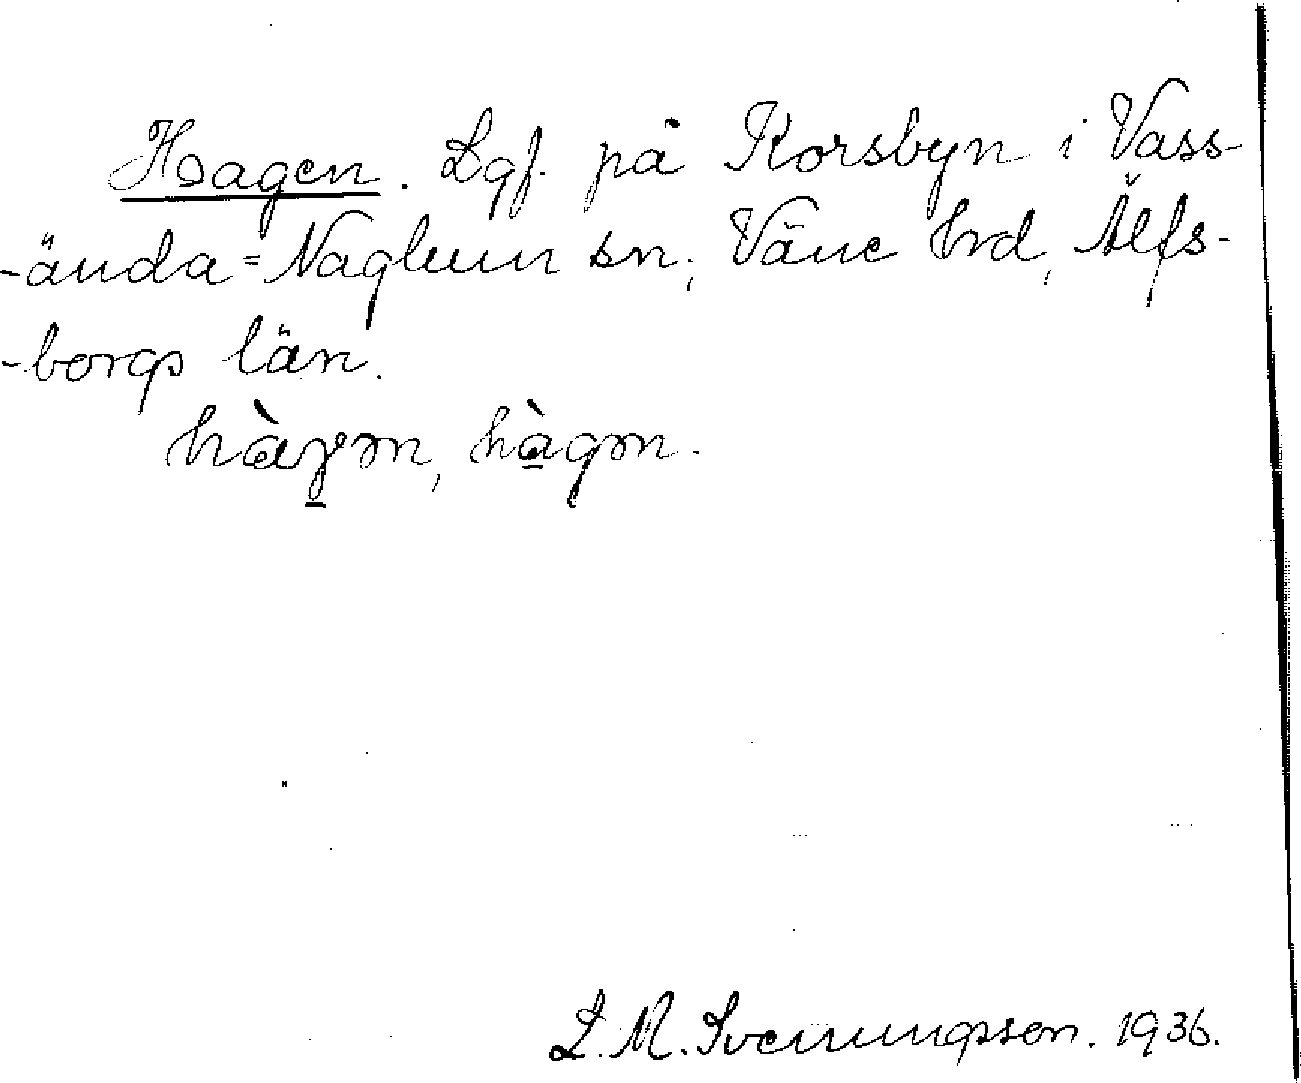 Hagen. Lgf. på Korsbyn i Vass-
-ända-Naglum sn, Väne hrd, Älfs-
-borgs län.
hàgən, hàgən.
L. M. Svenungsson. 1936.